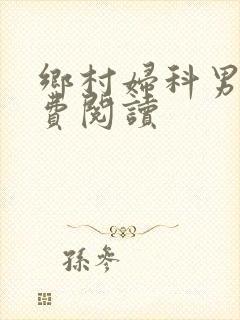 鄉村婦科男
費閱讀
孫參